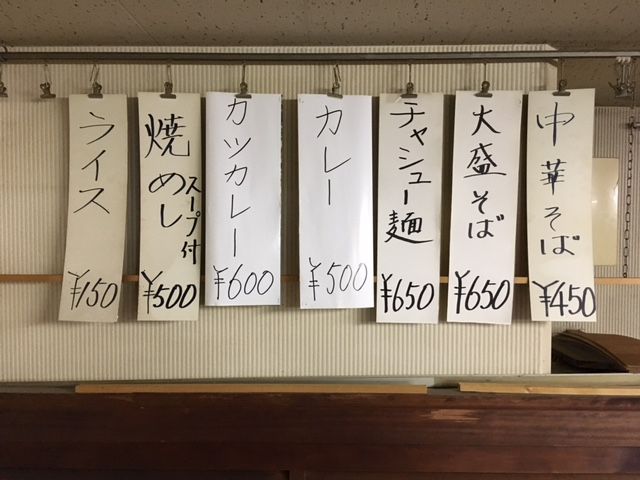 中華そば
¥450
大盛そば
¥650
チャシュー麺
¥650
カレー
¥500
カツカレー
¥600
焼めし
スープ付
¥500
ライス
¥150